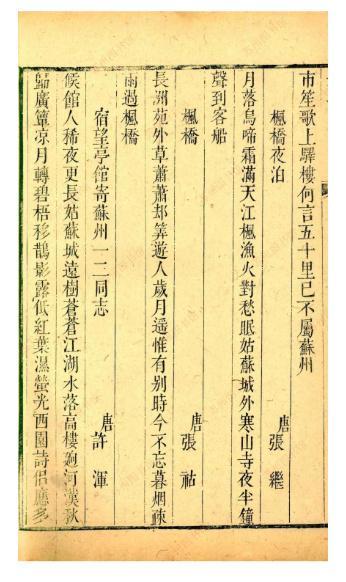 市笙歌上驛樓何言五十里已不屬蘇州
楓橋夜泊 唐張繼
月落烏啼霜滿天江楓漁火對愁眠姑蘇城外寒山寺夜半鐘
聲到客船
楓橋 唐張祜
長洲苑外草蕭蕭却筭遊人歲月遥惟有别時今不忘暮烟疎
雨過楓橋
宿望亭館寄蘇州一二同志 唐許渾
候館人稀夜更長姑蘇城遠樹蒼蒼江湖水落高樓逈河漢秋
歸廣簟凉月轉碧梧移鵲影露低紅葉濕螢光西園詩侣應多